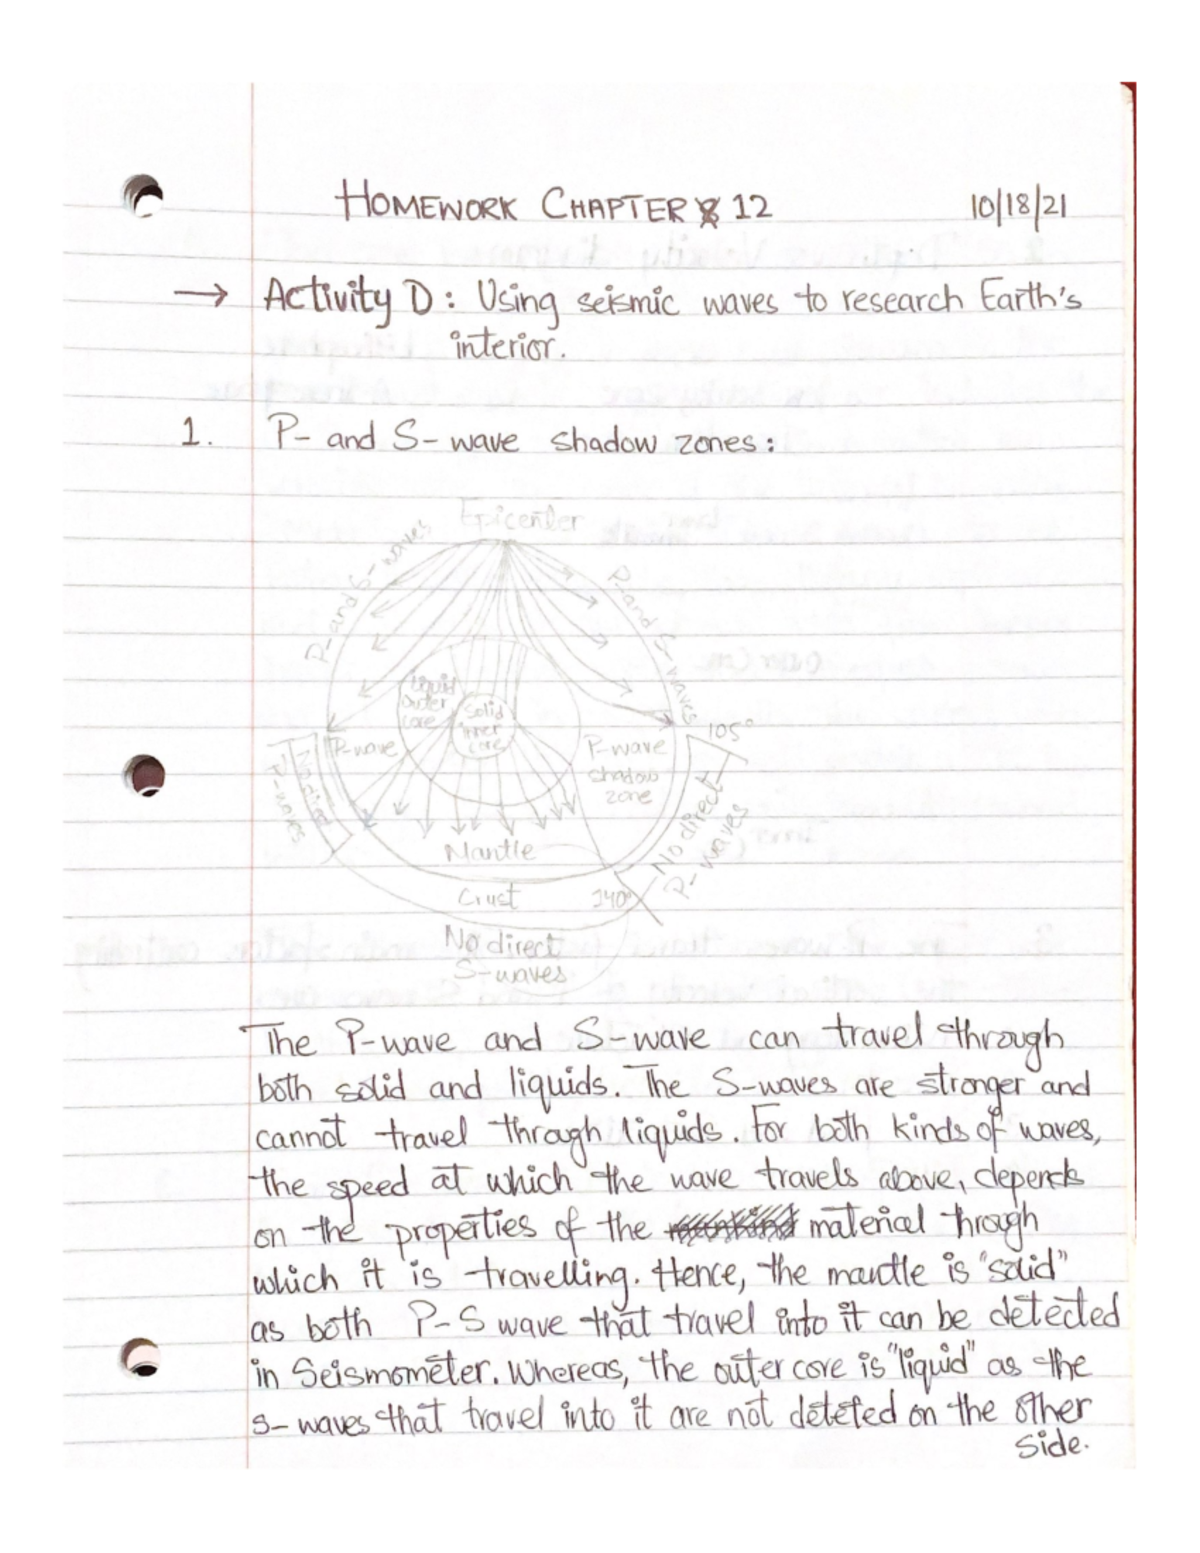 HOMEWORK CHAPTER 12
10/18/21
→ Activity D: Using seismic waves to research Earth's
interior.
1. P- and S- wave shadow zones:
Epicenter
P- and S- waves
P- and S- waves
Liquid
outer
core
Solid
inner
core
105°
P-wave
P-wave
shadow
zone
No direct
P-waves
No direct
P-waves
Mantle
Crust
140°
No direct
S-waves
The P-wave and S-wave can travel through
both solid and liquids. The S-waves are stronger and
cannot travel through liquids. For both kinds of waves,
the speed at which the wave travels above, depends
on the properties of the material through
which it is travelling. Hence, the mantle is "solid"
as both P-S wave that travel into it can be detected
in Seismometer. Whereas, the outer core is "liquid" as the
S- waves that travel into it are not deteted on the other
side.